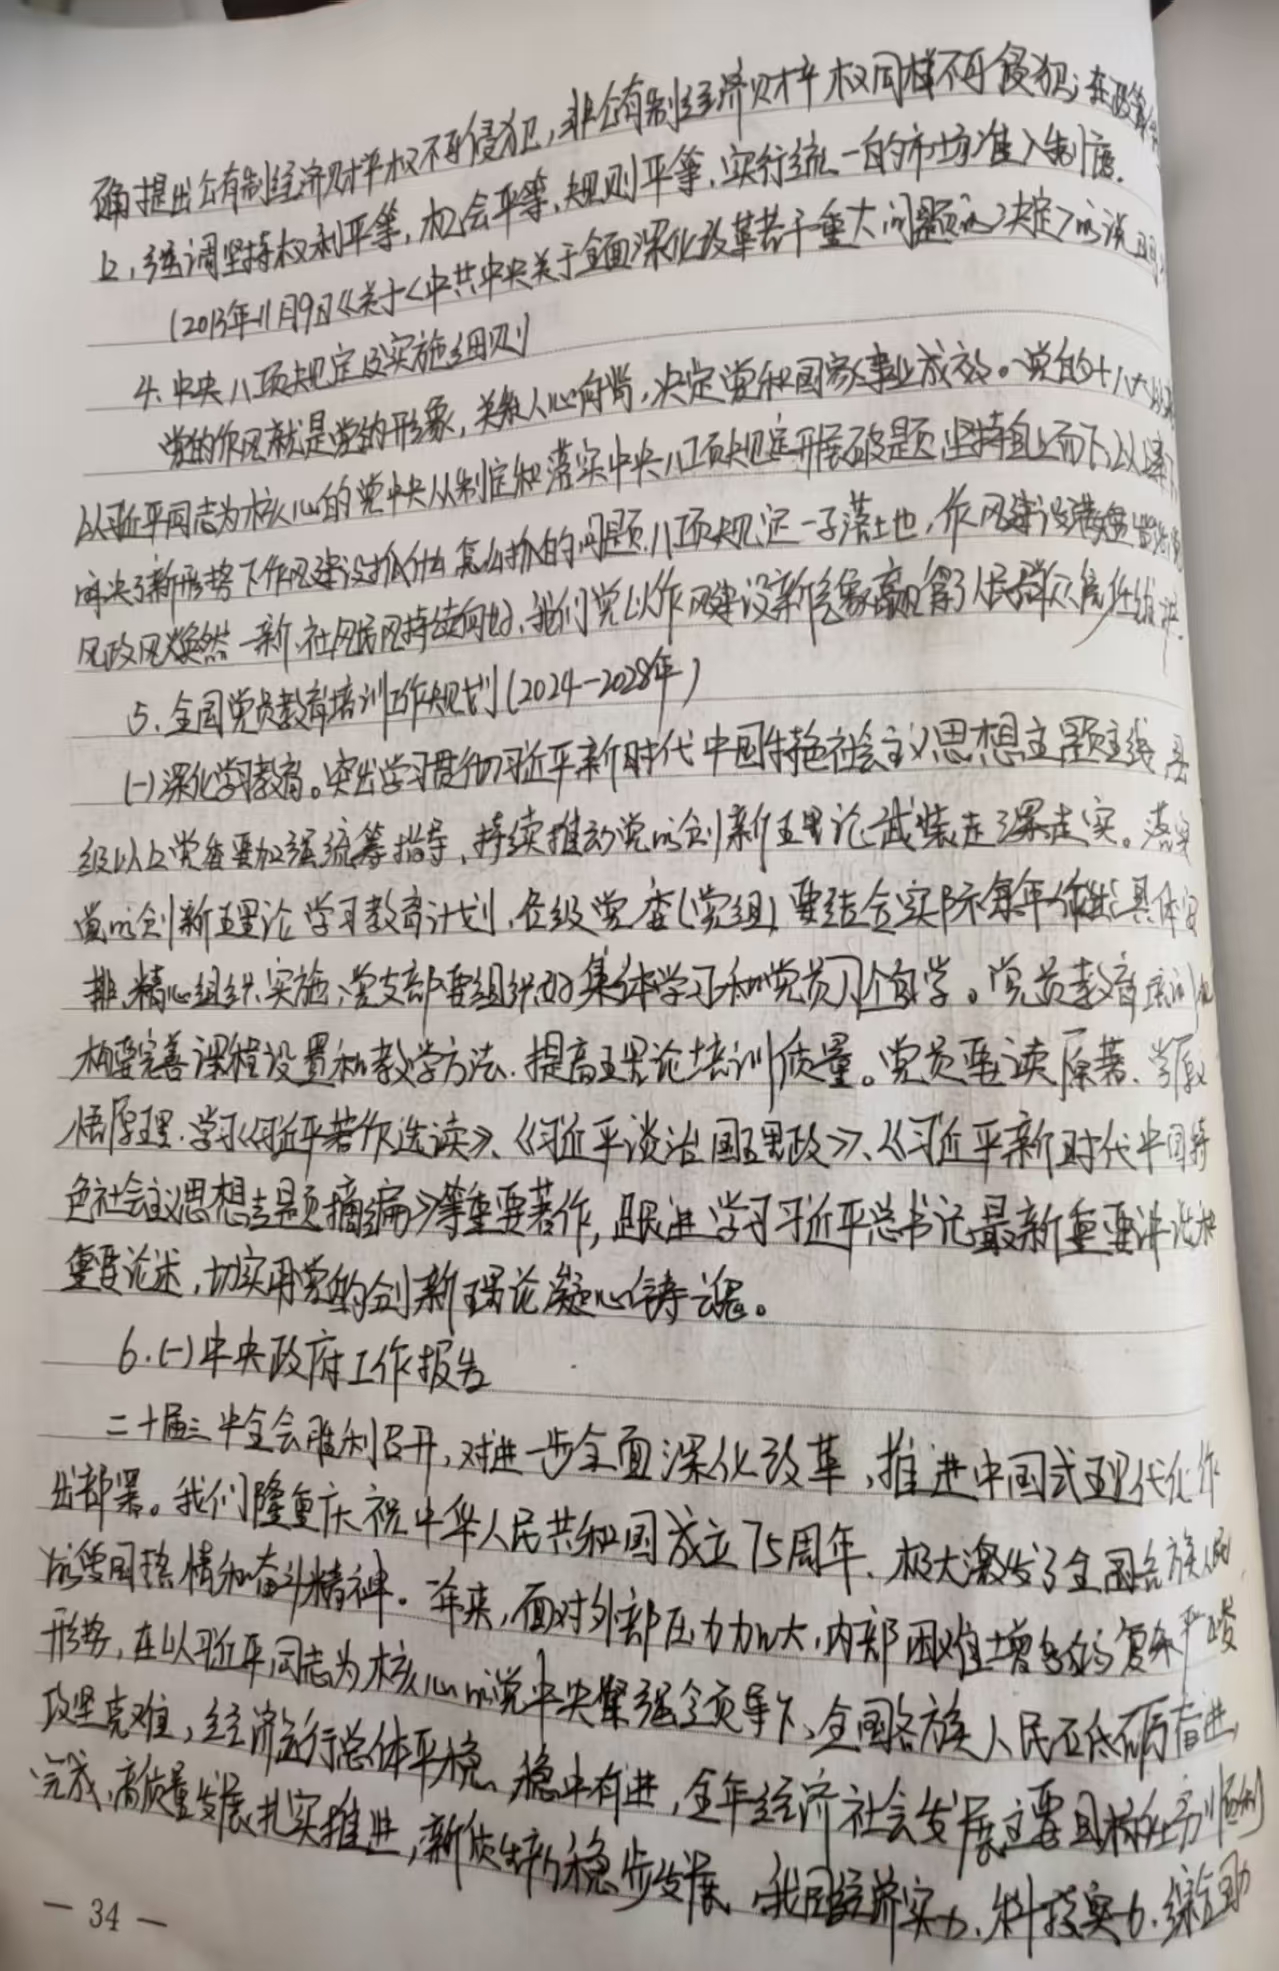 确提出公有制经济财产权不可侵犯,非公有制经济财产权同样不可侵犯;在政策
上,强调坚持权利平等,机会平等,规则平等,实行统一的市场准入制度.
(2013年11月9日《关于<中共中央关于全面深化改革若干重大问题的决定>的说明
4.中央八项规定及实施细则
党的作风就是党的形象,关系人心向背,决定党和国家事业成效。党的十八大以来
以习近平同志为核心的党中央从制定和落实中央八项规定开展破题,坚持自上而下,以
解决了新形势下作风建设抓什么怎么抓的问题.八项规定一子落地,作风建设满盘
风政风焕然一新,社风民风持续向好,我们党以作风建设新气象赢得了人民群众信任拥护.
5.全国党员教育培训工作规划(2024-2028年)
(一)深化学习教育。突出学习贯彻习近平新时代中国特色社会主义思想主题主线,县
级以上党委要加强统筹指导,持续推动党的创新理论武装走深走实。落实
党的创新理论学习教育计划,各级党委(党组)要结合实际每年作出具体安
排,精心组织实施,党支部要组织好集体学习和党员个自学。党员教育培训机
构要完善课程设置和教学方法.提高理论培训质量。党员要读原著、学原文
悟原理.学习《习近平著作选读》、《习近平谈治国理政》、《习近平新时代中国特
色社会主义思想专题摘编》等重要著作,跟进学习习近平总书记最新重要讲话和
重要论述,切实用党的创新理论凝心铸魂。
6.(一)中央政府工作报告
二十届三中全会胜利召开,对进一步全面深化改革,推进中国式现代化作
出部署。我们隆重庆祝中华人民共和国成立75周年、极大激发了全国各族人民
的爱国热情和奋斗精神。一年来,面对外部压力加大,内部困难增多的复杂严峻
形势,在以习近平同志为核心的党中央坚强领导下,全国各族人民砥砺奋进,
攻坚克难,经济运行总体平稳、稳中有进,全年经济社会发展主要目标任务顺利
完成,高质量发展扎实推进,新质生产力稳步发展,我国经济实力、科技实力、综合国力
— 34 —